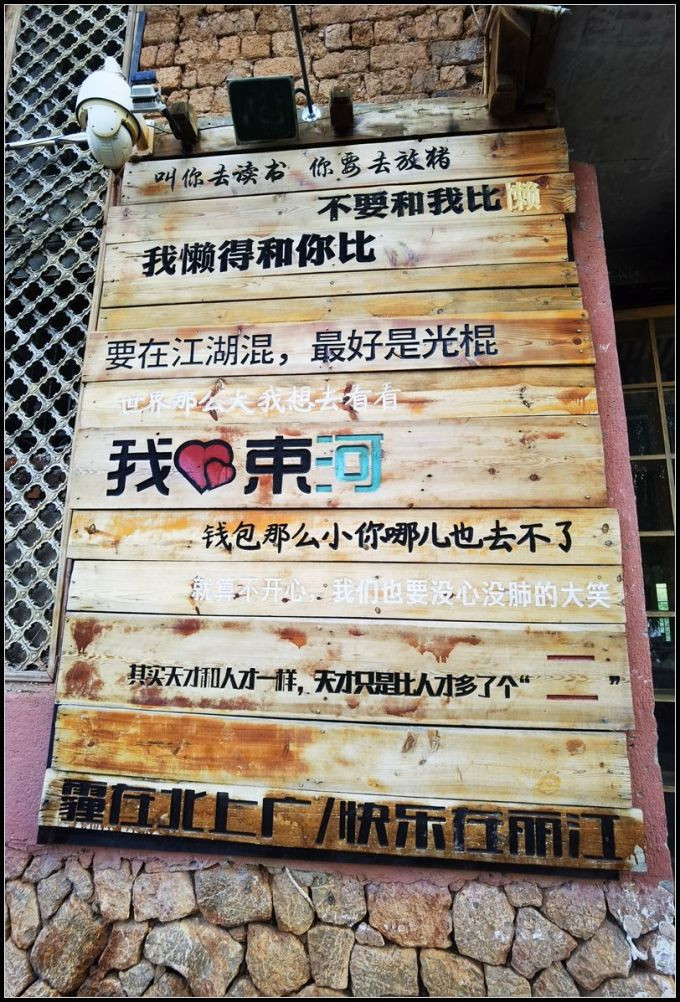 叫你去读书 你要去放猪
不要和我比懒
我懒得和你比
要在江湖混，最好是光棍
世界那么大我想去看看
我束河
钱包那么小你哪儿也去不了
就算不开心，我们也要没心没肺的大笑
其实天才和人才一样，天才只是比人才多了个“二”
霾在北上广/快乐在丽江